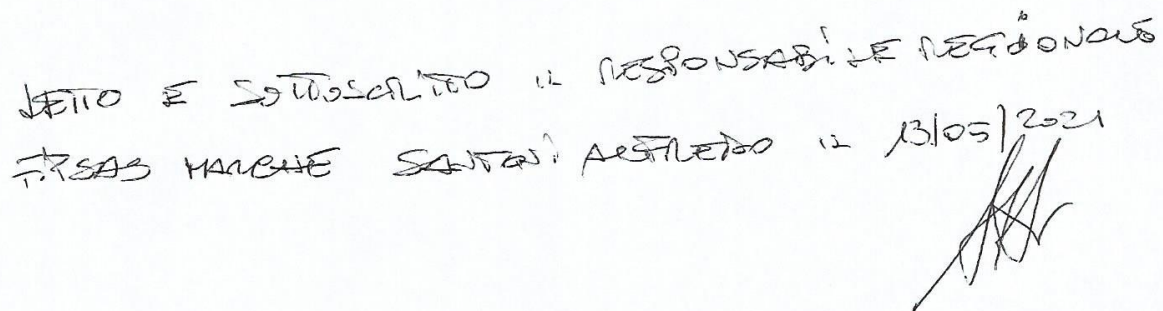 LETTO E SOTTOSCRITTO IL RESPONSABILE REGIONALE
FIPSAS MARCHE SANTONI ALFREDO IL 13/05/2021